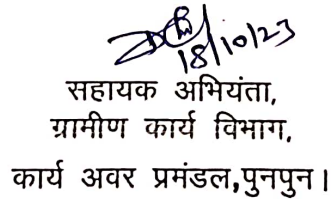 18/10/23
सहायक अभियंता,
ग्रामीण कार्य विभाग,
कार्य अवर प्रमंडल,पुनपुन।